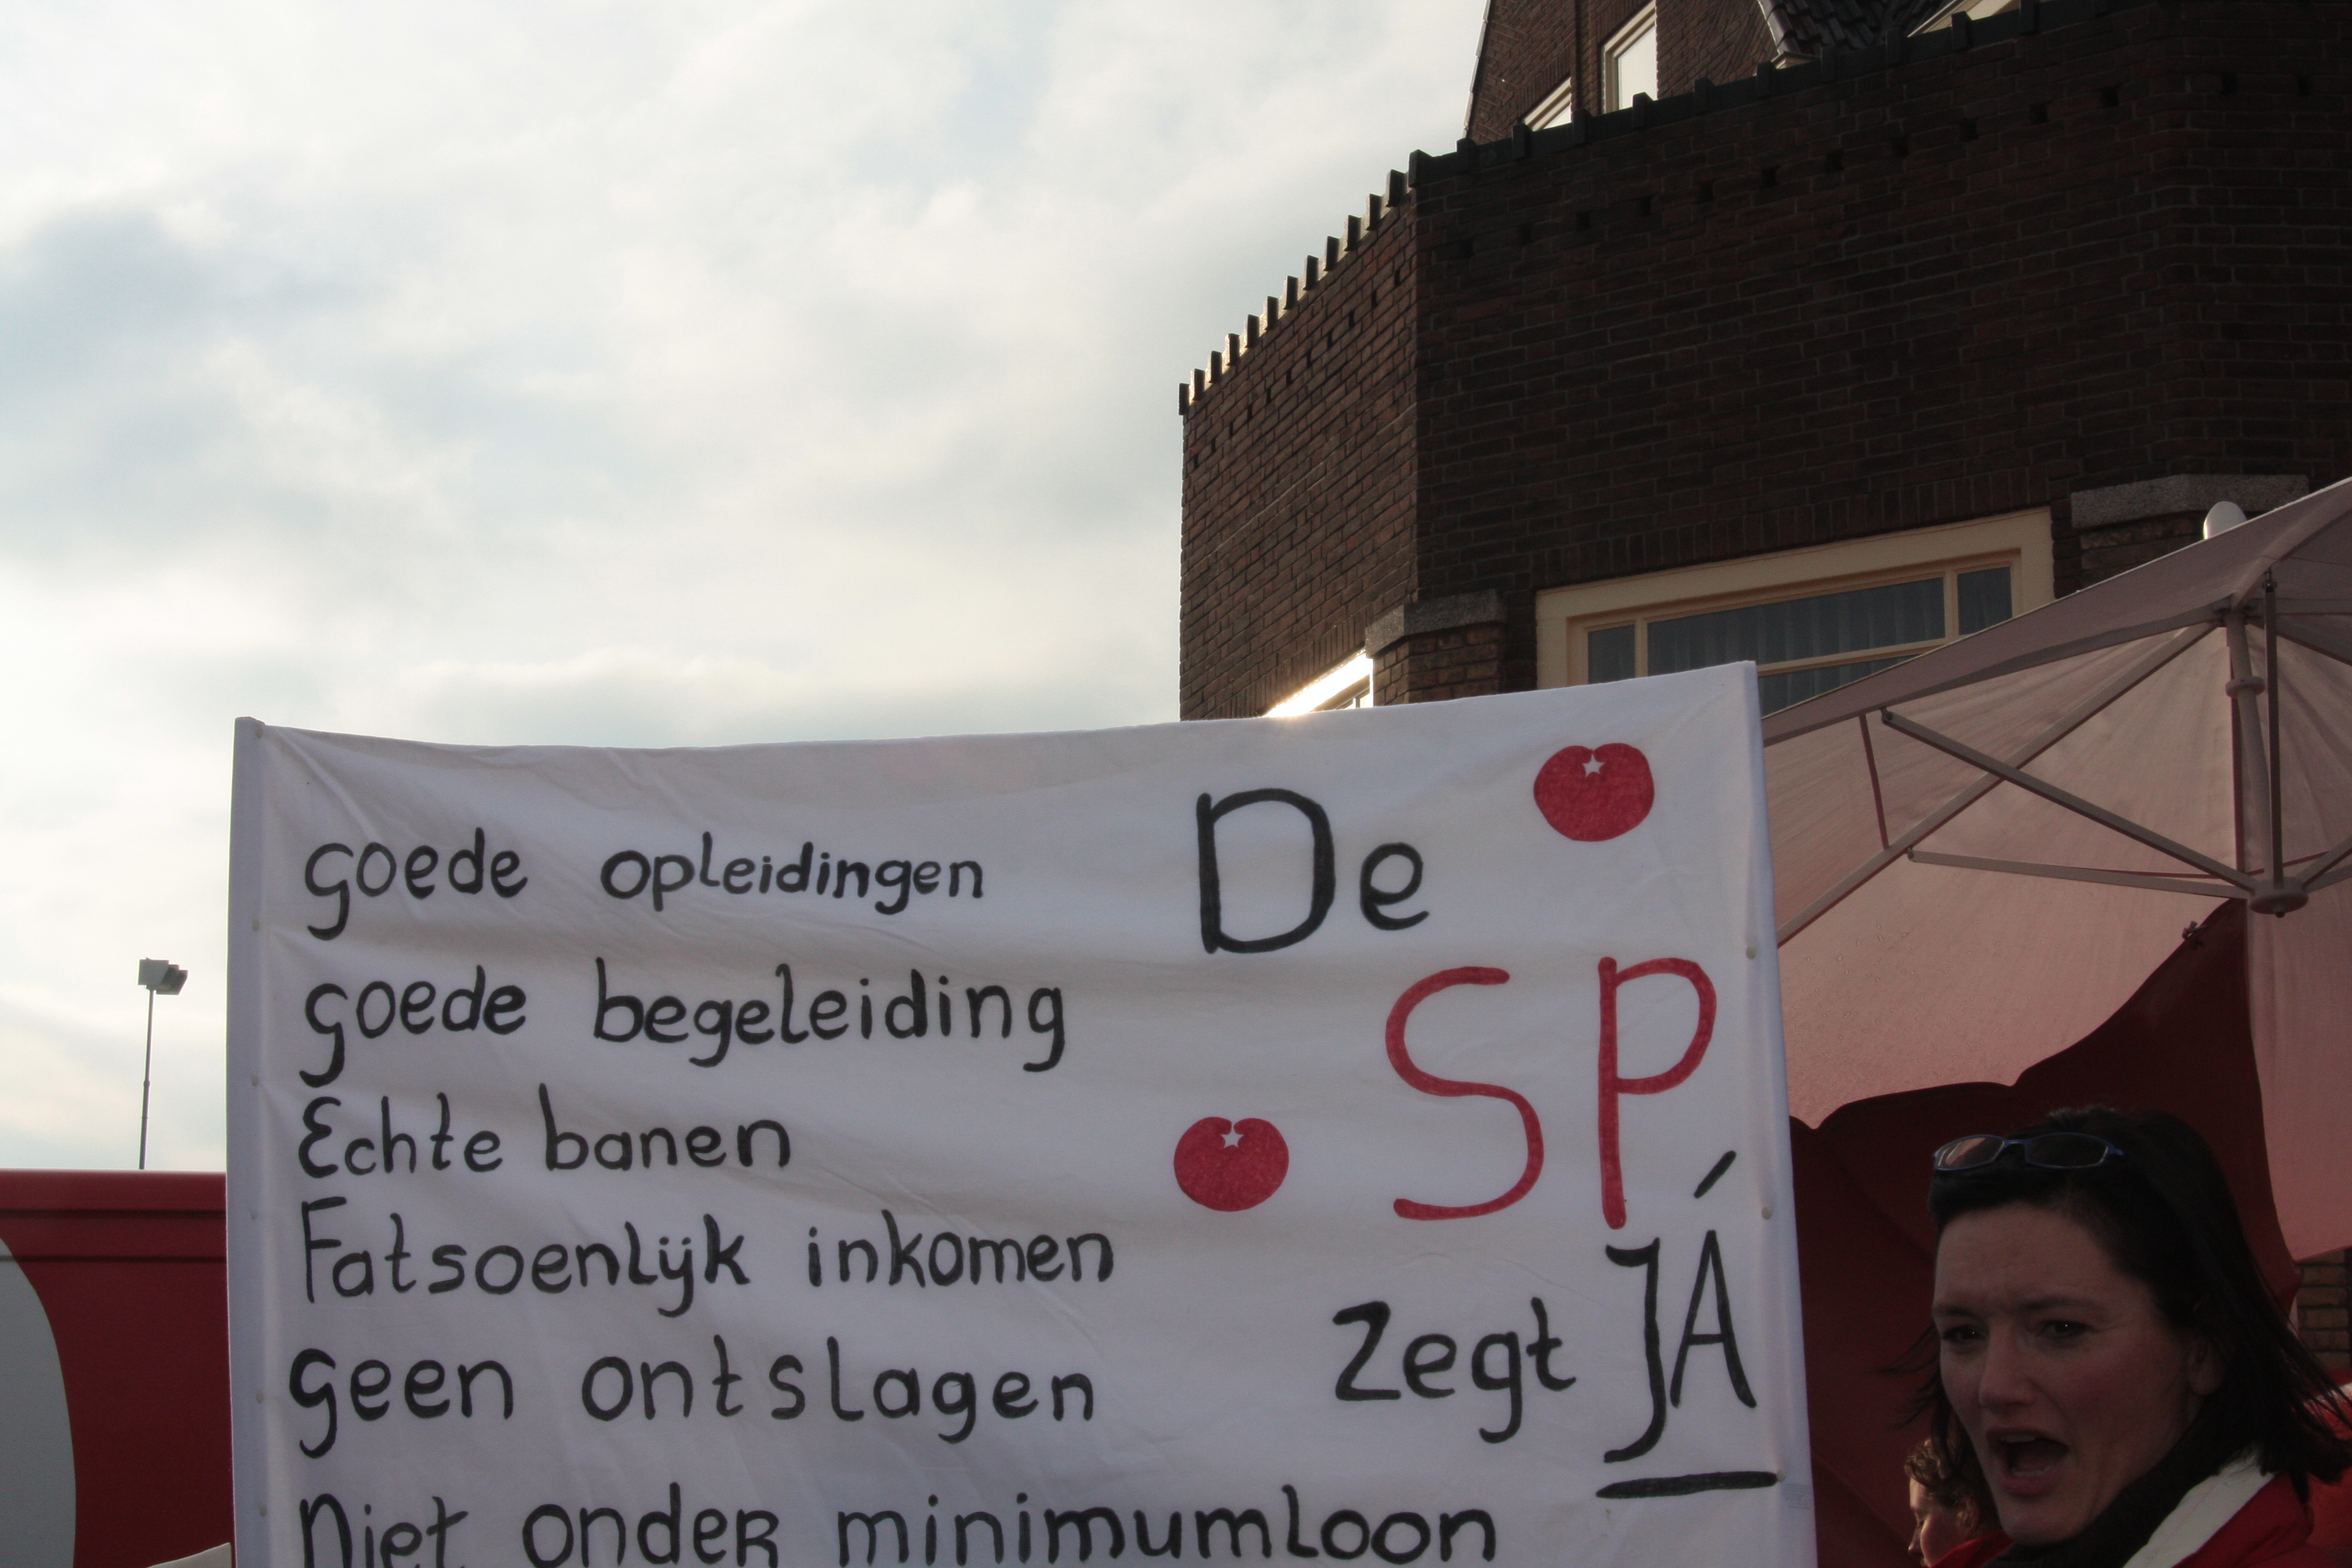 goede opleidingen
goede begeleiding
Echte banen
Fatsoenlijk inkomen
geen ontslagen
Niet onder minimumloon
De
SP
zegt JÁ